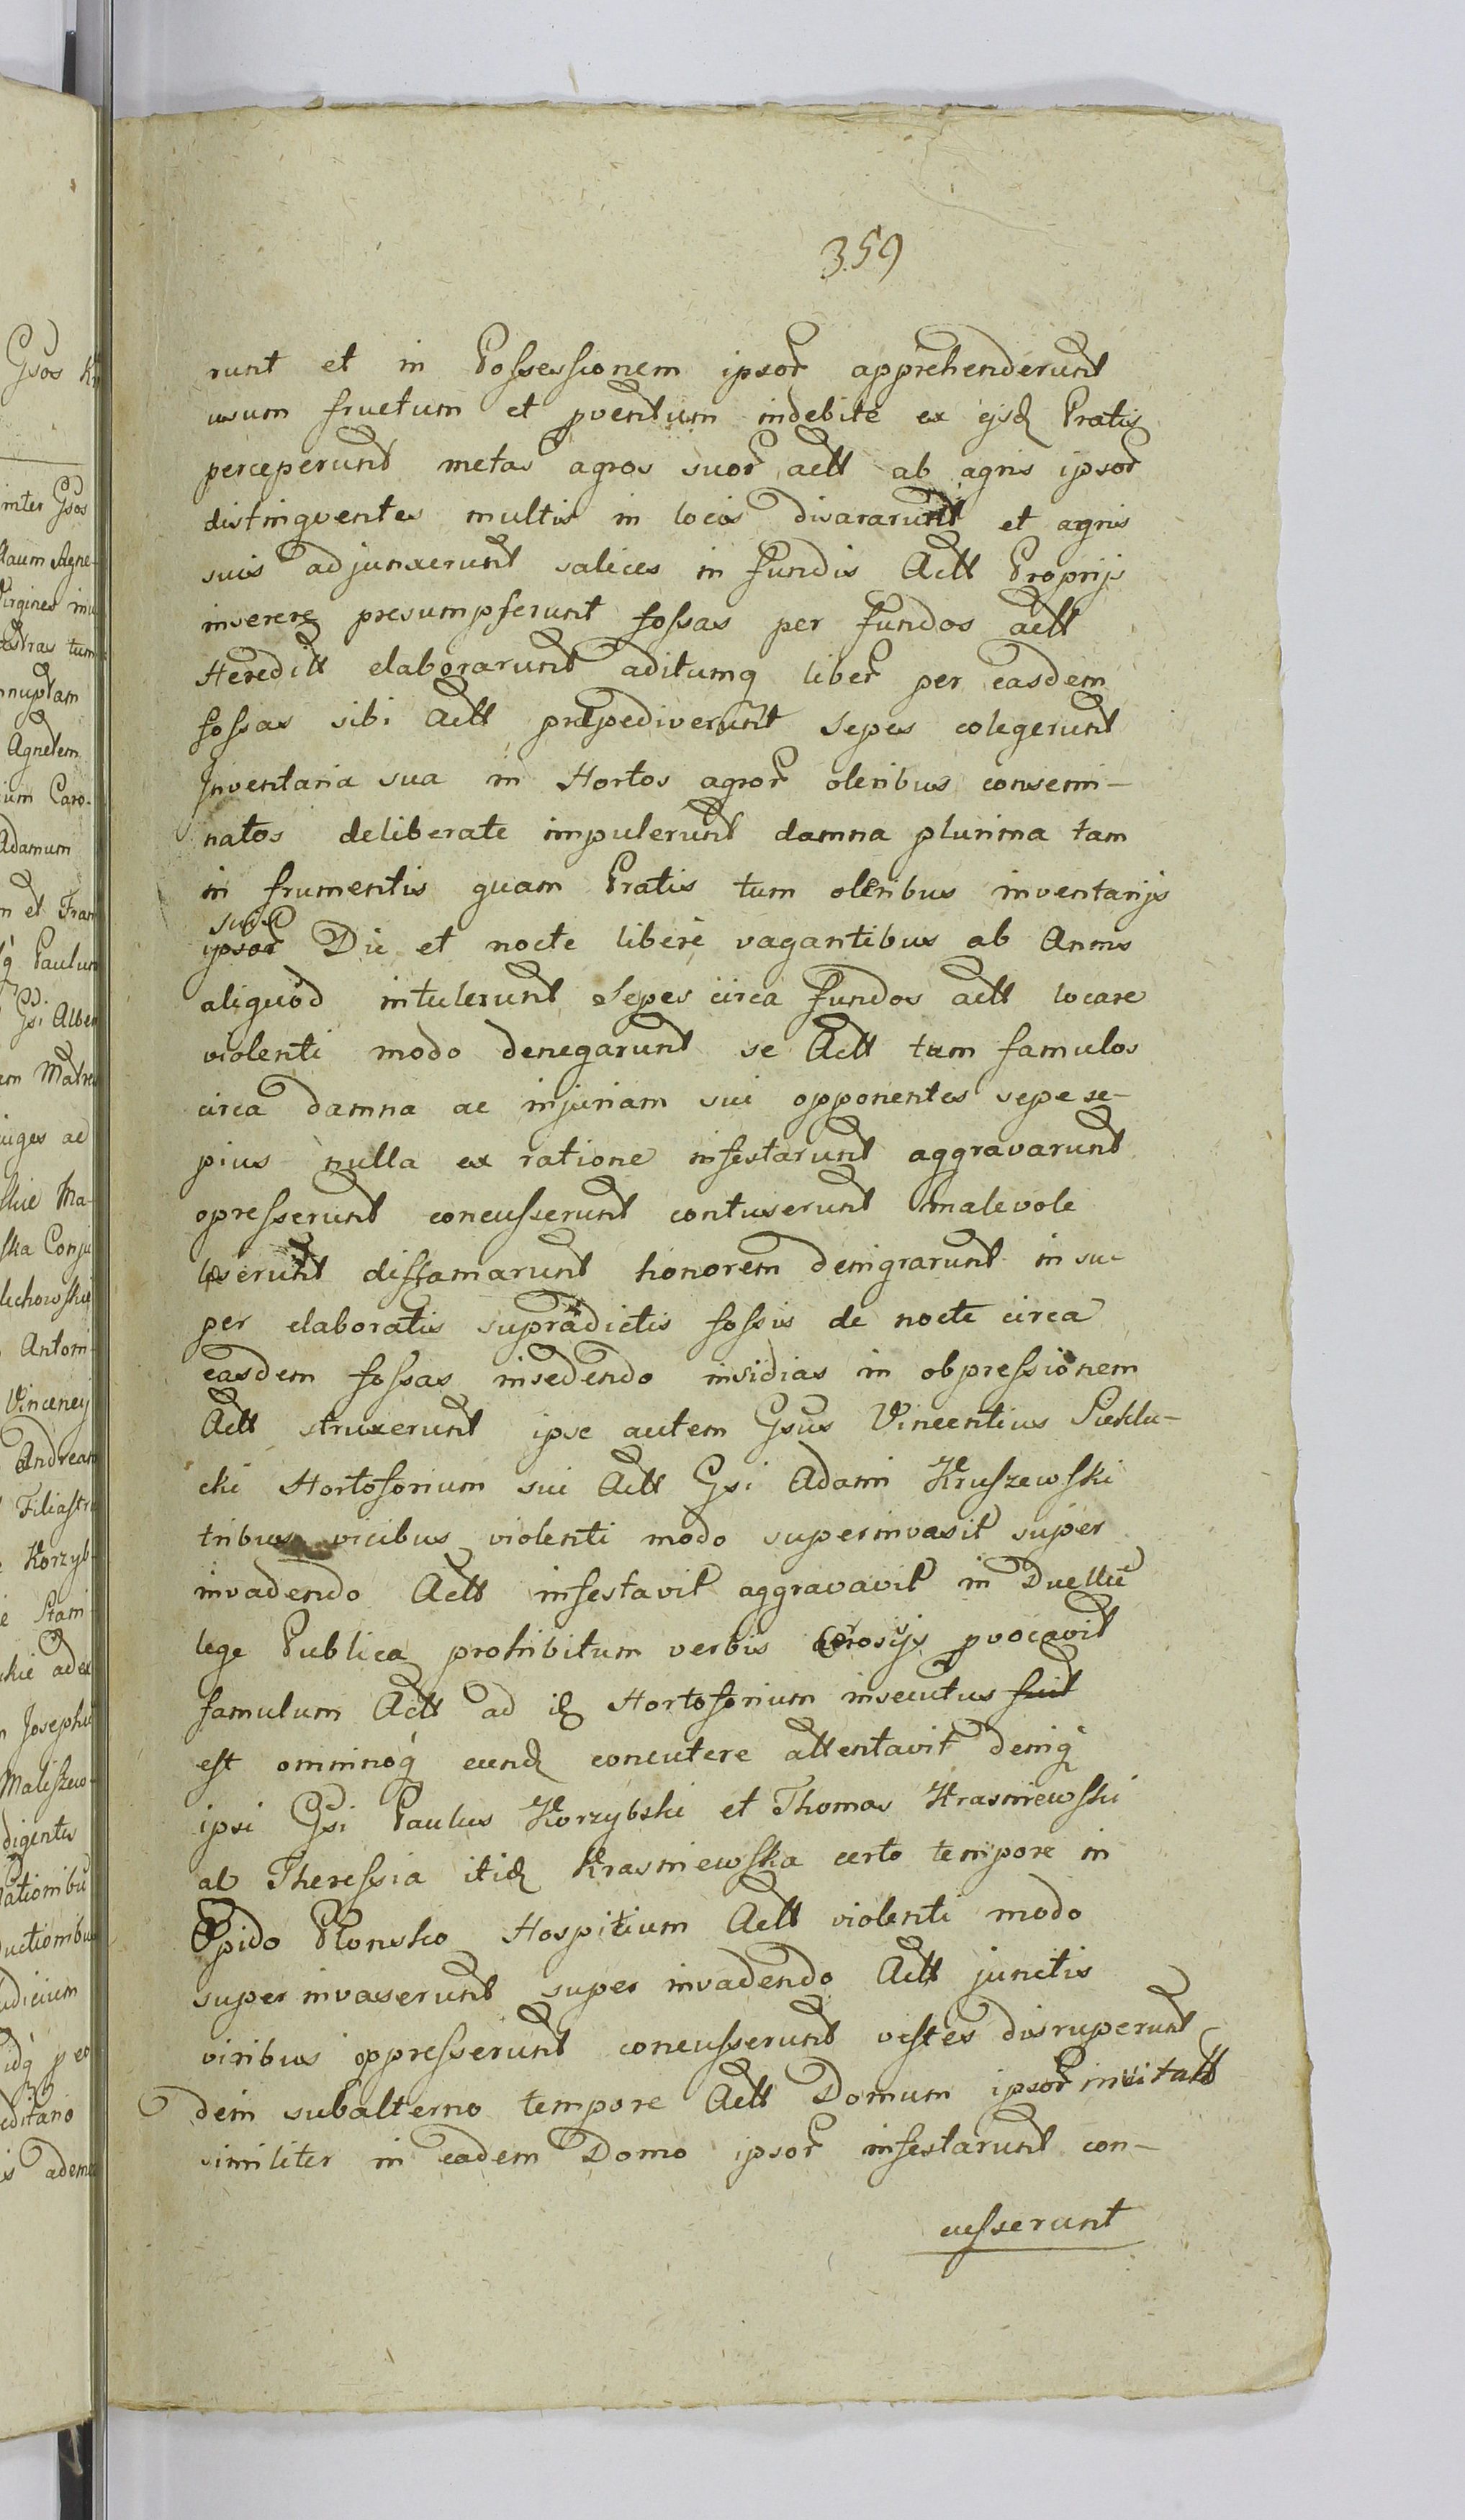 359
runt et in Possessionem ipsor apprehenderunt
usum fructum et pventum indebite ex ejsd Pratis
perceperunt metas agros suor actt ab agris ipsor
distingventes multis in locis disararunt et agris
suis adjunxerunt salices in fundis Actt Proprijs
inserere presumpserunt fossas per fundos actt
Hereditt elaborarunt aditumq liber per easdem
fossas sibi Actt præpediverunt Sepes colegerunt
Inventaria sua in Hortos agror oleribus consemi-
natos deliberate impulerunt damna plurima tam
in frumentis quam Pratis tum oleribus inventarijs
suis
ipsor Die et nocte libere vagantibus ab Annis
aliquod intulerunt Sepes circa fundos actt locare
violenti modo denegarunt se Actt tum famulos
circa damna ac injuriam sui opponentes sepe se-
pius nulla ex ratione infestarunt aggravarunt
opresserunt concusserunt contuserunt malevole
læserunt diffamarunt honorem denigrarunt in su-
per elaboratis supradictis fossis de nocte circa
easdem fossas insedendo insidias in obpressionem
Actt struxerunt ipse autem Gsus Vincentius Sieklu-
cki Hortoforium sui Actt Gsi Adami Kruszewski
tribus vicibus violenti modo superinvasit super
invadendo Actt infestavit aggravavit in Duellu
lege Publica prohibitum verbis pvocavit
famulum Actt ad id Hortoforium insecutus fuit
est omninoq eund concutere attentavit deniq
ipsi Gsi Paulus Korzybski et Thomas Krasniewski
at Theressia itid Krasniewska certo tempore in
Opido Plonsko Hospitium Actt violenti modo
super invaserunt super invadendo Actt junctis
viribus oppresserunt concusserunt vestes disruperunt
dein subalterno tempore Actt Domum ipsor invitatt
similiter in eadem Domo ipsor infestarunt con-
cusserunt